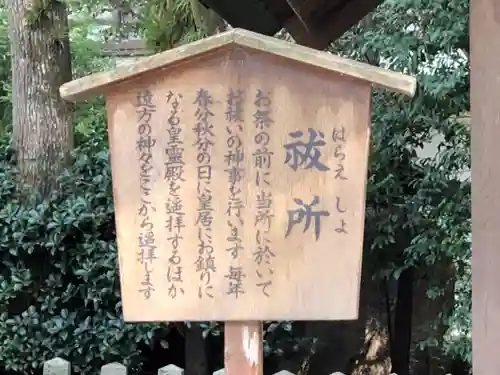 祓所
はらえしょ
お祭の前に当所に於いて
お祓いの神事を行います 毎年
春分秋分の日に皇居にお鎮りに
なる皇霊殿を遥拝するほか
遠方の神々をここから遥拝します